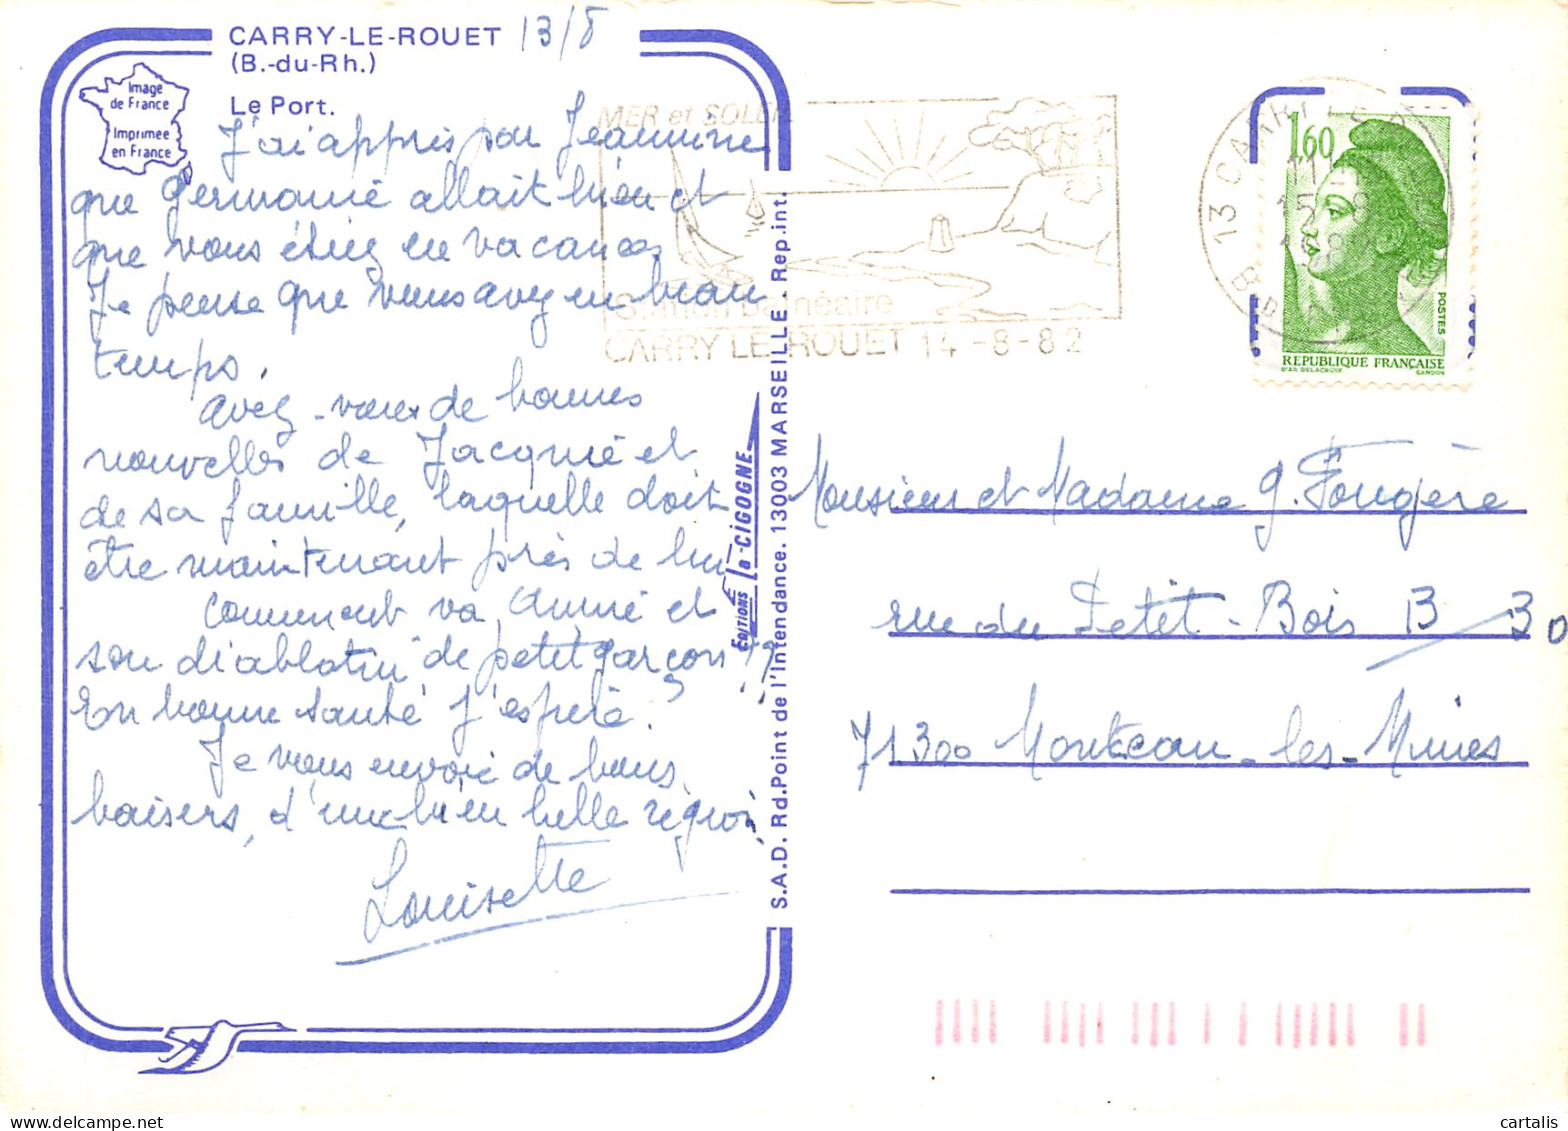 CARRY-LE-ROUET 13/8
(B.-du-Rh.)
Le Port.
Image
de France
Imprimée
en France
J'ai appris par Jeannine
que Germaine allait bien et
que vous étiez en vacances
Je pense que vous avez eu beau
temps.
avez-vous de bonnes
nouvelles de Jacquie et
de sa famille, laquelle doit
être maintenant près de lui
Comment va Annie et
son "diablotin" de petit garçon ??
En bonne santé j'espère ?
Je vous envoie de bons
baisers, d'une bien belle région.
Louisette
ÉDITIONS la CIGOGNE
S.A.D. Rd.Point de l'Intendance. 13003 MARSEILLE . Rep.int.
MER et SOLEIL
Station balnéaire
CARRY LE ROUET 14-8-82
13 CARRY LE R
15 -8
1,60
POSTES
REPUBLIQUE FRANÇAISE
D'AP. DELACROIX GANDON
Monsieur et Madame G. Fougère
rue du Petit-Bois B/30
71300 Montceau-les-Mines
cartalis